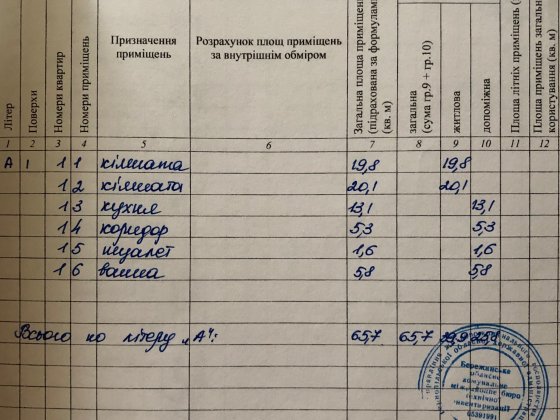 Літер
Поверхи
Номери квартир
Номери приміщень
Призначення
приміщень
Розрахунок площ приміщень
за внутрішнім обміром
Загальна площа приміщень
(підрахована за формулами)
(кв. м)
загальна
(сума гр.9 + гр.10)
житлова
допоміжна
Площа літніх приміщень
Площа приміщень загального
користування (кв. м)
1 2 3 4 5 6 7 8 9 10 11 12
А 1 1 1 кімната 19,8 19,8
1 2 кімната 20,1 20,1
1 3 кухня 13,1 13,1
1 4 коридор 5,3 5,3
1 5 туалет 1,6 1,6
1 6 ванна 5,8 5,8
Всього по літеру „А": 65,7 65,7 39,9 25,8
Бережанське
обласне
комунальне
міжрайонне бюро
технічної
інвентаризації